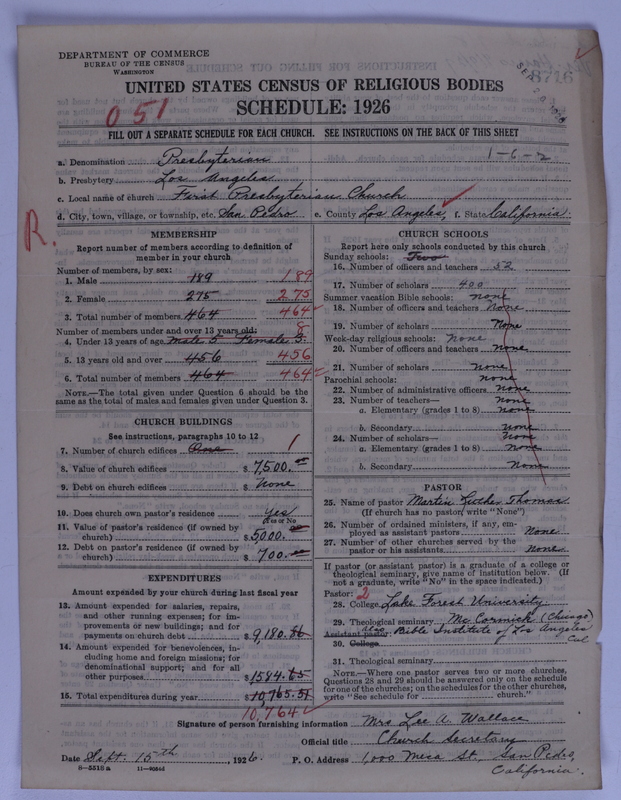 DEPARTMENT OF COMMERCE
BUREAU OF THE CENSUS
WASHINGTON
8716
UNITED STATES CENSUS OF RELIGIOUS BODIES
SCHEDULE: 1926
051
FILL OUT A SEPARATE SCHEDULE FOR EACH CHURCH. SEE INSTRUCTIONS ON THE BACK OF THIS SHEET
a. Denomination Presbyterian 1-6-2
b. Presbytery Los Angeles
c. Local name of church First Presbyterian Church
d. City, town, village, or township, etc. San Pedro e. County Los Angeles, f. State California.
R.
MEMBERSHIP
Report number of members according to definition of
member in your church
Number of members, by sex:
1. Male 189 189
2. Female 275 275
3. Total number of members 464 464
Number of members under and over 13 years old: 8
4. Under 13 years of age male 5 Female 3.
5. 13 years old and over 456 456
6. Total number of members 464 464
NOTE.—The total given under Question 6 should be the
same as the total of males and females given under Question 3.
CHURCH BUILDINGS
See instructions, paragraphs 10 to 12
7. Number of church edifices One 1
8. Value of church edifices $ 7,500.00
9. Debt on church edifices $ None
10. Does church own pastor's residence? Yes
(Yes or No)
11. Value of pastor's residence (if owned by
church) $ 5000.00
12. Debt on pastor's residence (if owned by
church) $ 700.00
EXPENDITURES
Amount expended by your church during last fiscal year
13. Amount expended for salaries, repairs,
and other running expenses; for im-
provements of new buildings; and for
payments on church debt $ 9,180.86
14. Amount expended for benevolences, in-
cluding home and foreign missions; for
denominational support; and for all
other purposes $ 1584.65
15. Total expenditures during year $ 10,765.51
10,764
CHURCH SCHOOLS
Report here only schools conducted by this church
Sunday schools: Two
16. Number of officers and teachers 52
17. Number of scholars 400
Summer vacation Bible schools: none
18. Number of officers and teachers None
19. Number of scholars None
Week-day religious schools: None
20. Number of officers and teachers None
21. Number of scholars None
Parochial schools: none
22. Number of administrative officers None
23. Number of teachers— None
a. Elementary (grades 1 to 8) None
b. Secondary None
24. Number of scholars— None
a. Elementary (grades 1 to 8) None
b. Secondary None
PASTOR
25. Name of pastor Martin Luther Thomas
(If church has no pastor, write "None")
26. Number of ordained ministers, if any, em-
ployed as assistant pastors None
27. Number of other churches served by the
pastor or his assistants None
If pastor (or assistant pastor) is a graduate of a college or
theological seminary, give name of institution below. (If
not a graduate, write "No" in the space indicated.)
Pastor: 2
28. College Lake Forest University
29. Theological seminary McCormick (Chicago)
Assistant pastor: also Bible Institute of Los Angeles,
30. College Cal
31. Theological seminary
NOTE.—Where one pastor serves two or more churches,
Questions 28 and 29 should be answered only on the schedule
for one of the churches; on the schedules for the other churches,
write "See schedule for church."
Signature of person furnishing information Mrs Lee A. Wallace
Official title Church Secretary
Date Sept. 15th, 1926. P. O. Address 1,000 Meca St., San Pedro,
California.
8-5513 a